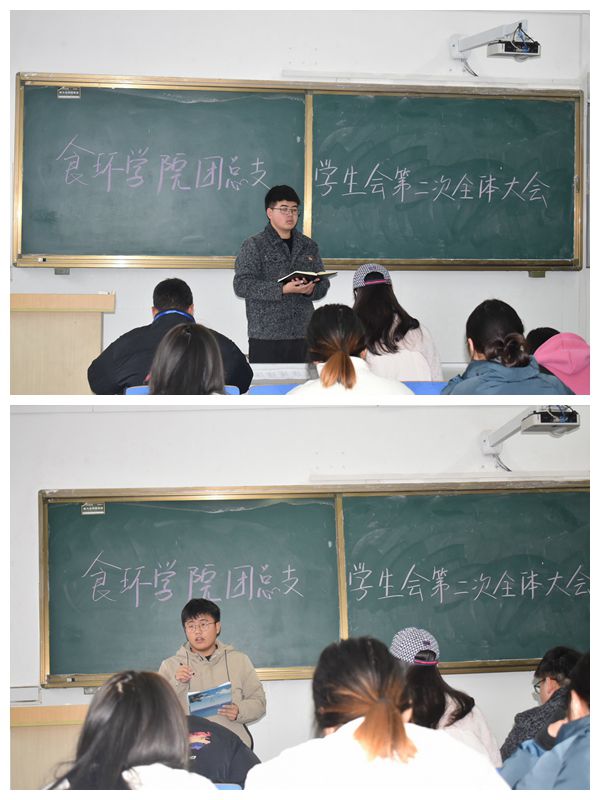 食环学院团总支 学生会第二次全体大会
食环学院团总支 学生会第二次全体大会